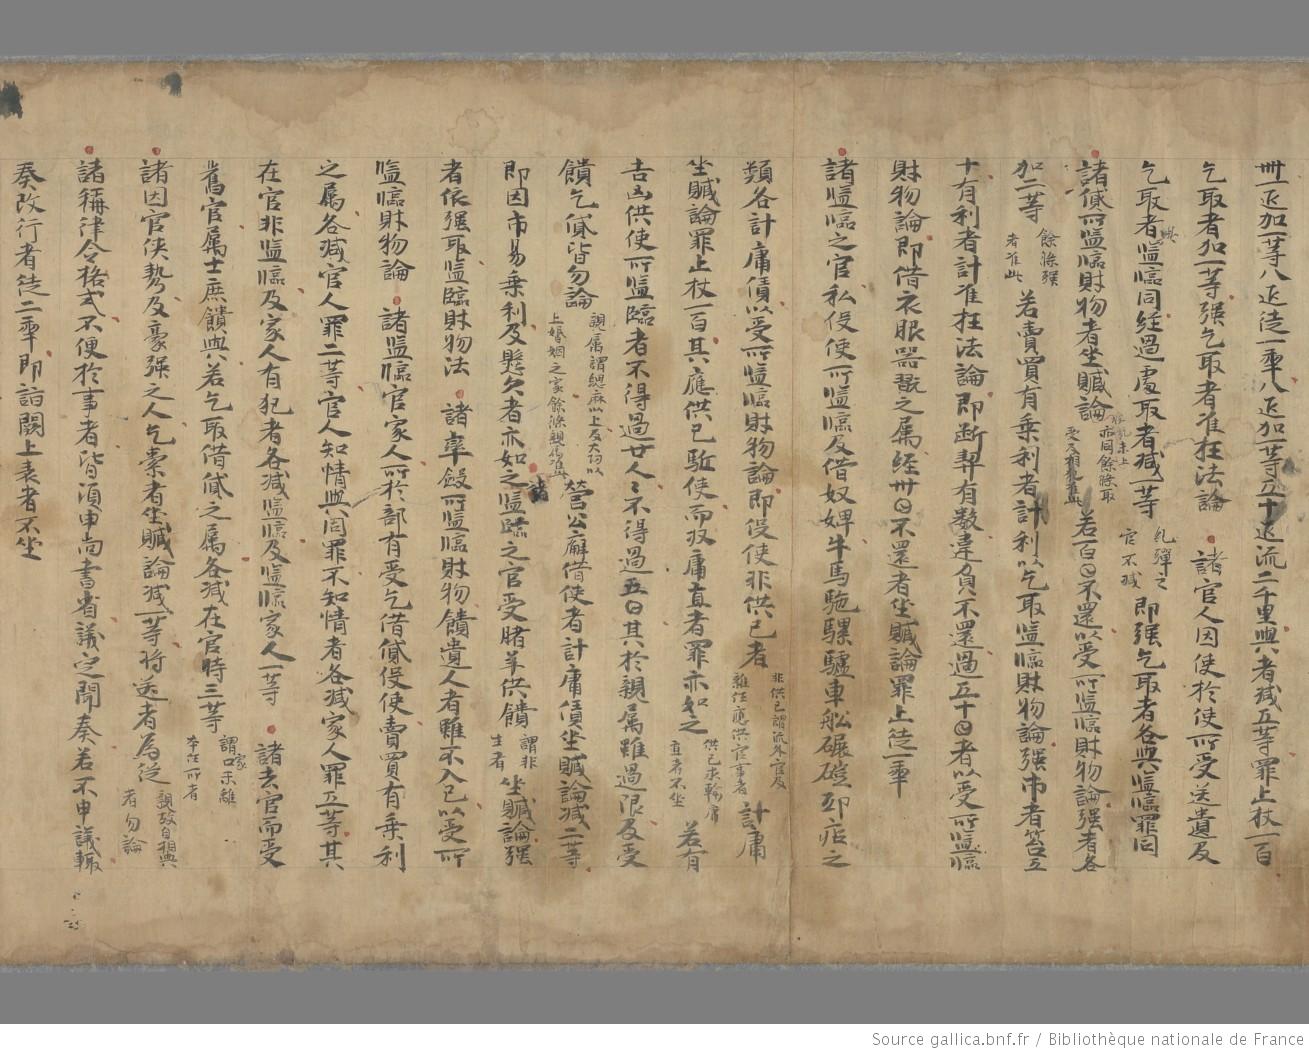 卌疋加一等八疋徒一年八疋加一等五十疋流二千里與者減五等罪止杖一百
乞取者加一等强乞取者准枉法論 諸官人因使於使所受送遺及
乞取者與監臨同經過處取者減一等 糺彈之官不減 即强乞取者各與監臨罪同
諸貸所監臨財物者坐贓論 授訖未上亦同餘條取受及相犯准此 若百日不還以受所監臨財物論强者各
加二等 餘條强者准此 若賣買有乘利者計利以乞取監臨財物論强市者笞五
十有利者計准枉法論即斷契有數違負不還過五十日者以受所監臨
財物論即借衣服器翫之属經卅日不還者坐贓論罪止徒一年
諸監臨之官私役使所監臨及借奴婢牛馬駞騾驢車舩碾磑邸店之
類各計庸債以受所監臨財物論即役使非供己者 非供己謂流外官及雜任應供官事者 計庸
坐贓論罪止杖一百其應供己駈使而收庸直者罪亦如之 供己求輸庸直者不坐 若有
吉凶供使所監臨者不得過廿人人不得過五日其於親属雖過限及受
饋乞貸皆勿論 親属謂緦麻以上及大功以上婚姻之家餘條親属准此 營公廨借使者計庸債坐贓論減二等
即因市易乘利及懸欠者亦如之 諸監臨之官受賭羊供饋 謂非生者 坐贓論强
者依强取監臨財物法 諸率斂所監臨財物饋遺人者雖不入己以受所
監臨財物論 諸監臨官家人於所部有受乞借貸役使賣買有乘利
之属各減官人罪二等官人知情與同罪不知情者各減家人罪五等其
在官非監臨及家人有犯者各減監臨及監臨家人一等 諸去官而受
舊官属士庶饋與若乞取借貸之属各減在官時三等 謂家口未離本任所者
諸因官俠勢及豪强之人乞索者坐贓論減一等將送者為從 親故自相與者勿論
諸稱律令格式不便於事者皆須申尚書省議定聞奏若不申議輒
奏改行者徒二年即詣闕上表者不坐
Source gallica.bnf.fr / Bibliothèque nationale de France